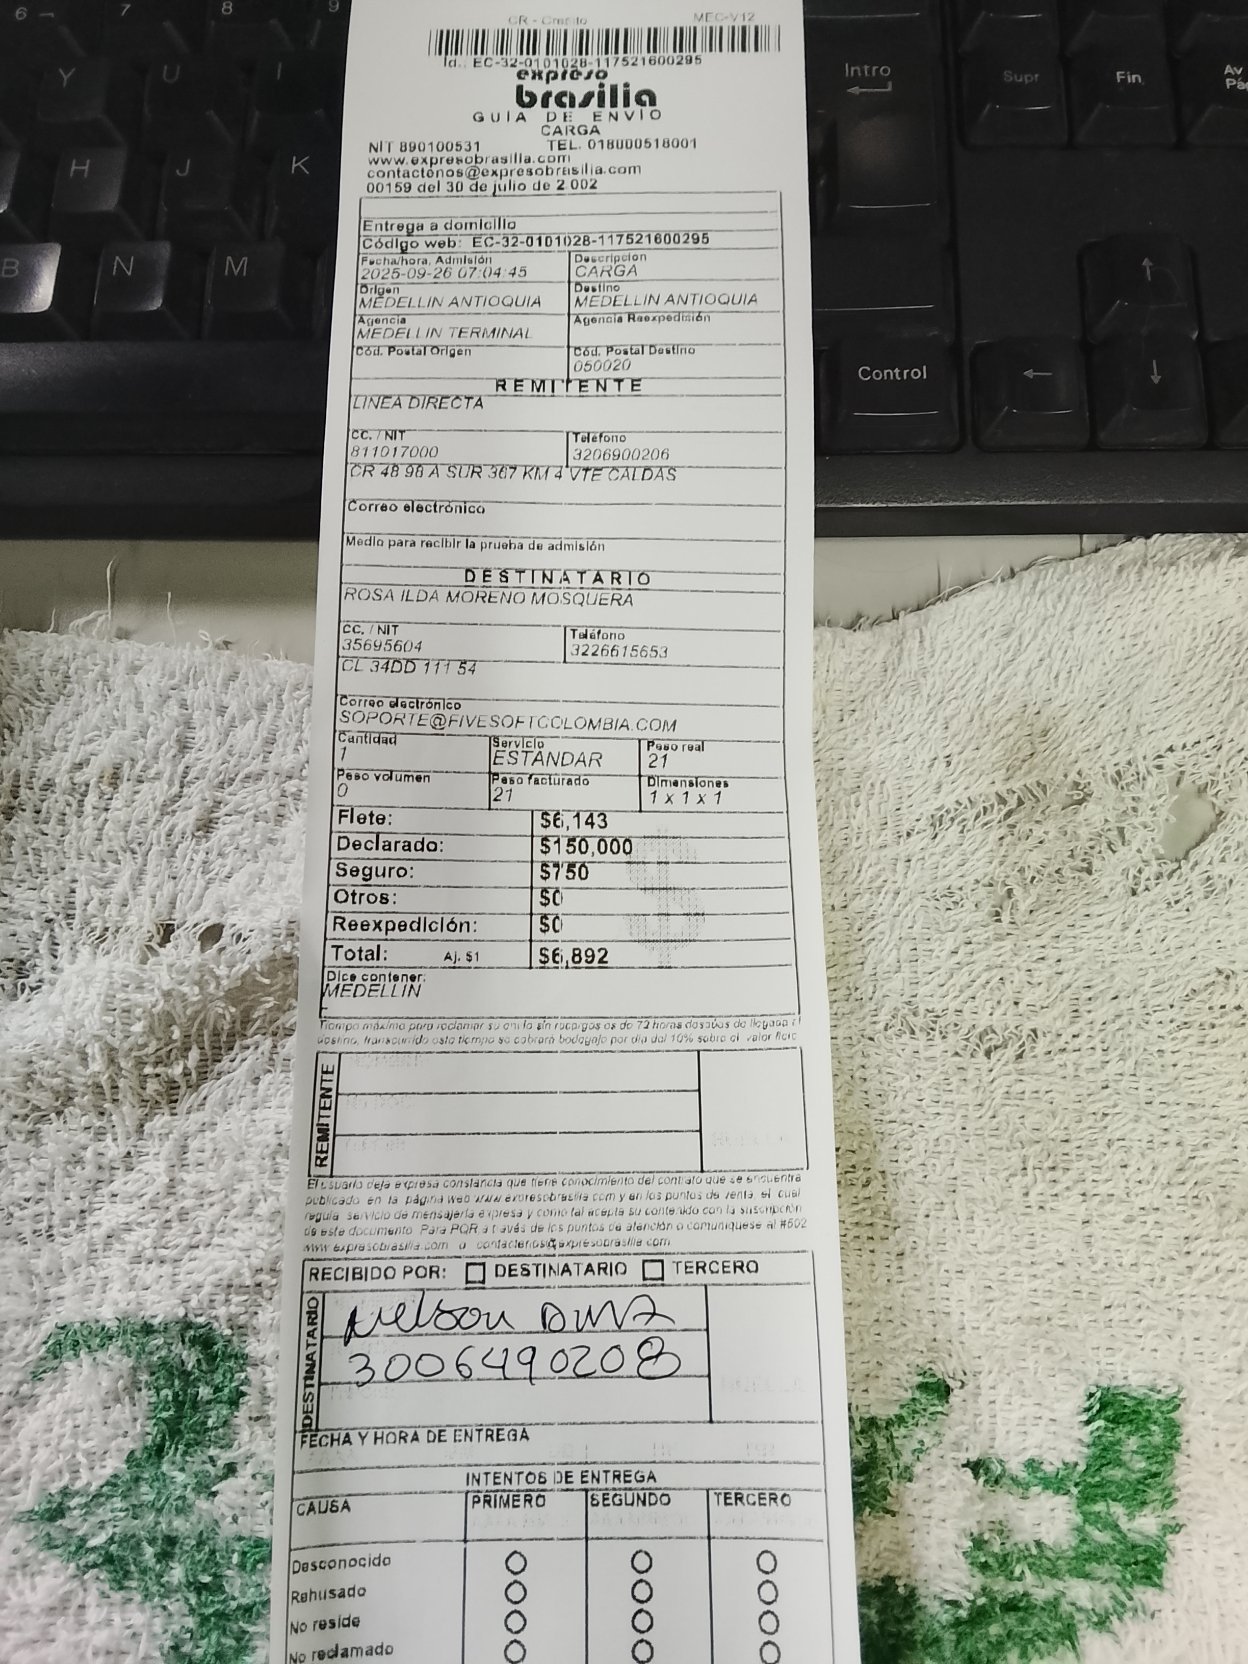 6 7 8 9
Y U I
H J K
B N M
Intro
Supr Fin Av Pá
Control
CR - Crédito MEC-V12
Id.: EC-32-0101028-117521600295
expreso
brasilia
GUIA DE ENVIO
CARGA
NIT 890100531 TEL. 018000518001
www.expresobrasilia.com
contactenos@expresobrasilia.com
00159 del 30 de julio de 2 002
Entrega a domicilio
Código web: EC-32-0101028-117521600295
Fecha/hora, Admisión Descripcion
2025-09-26 07:04:45 CARGA
Origen Destino
MEDELLIN ANTIOQUIA MEDELLIN ANTIOQUIA
Agencia Agencia Reexpedición
MEDELLIN TERMINAL
Cód. Postal Origen Cód. Postal Destino
050020
REMITENTE
LINEA DIRECTA
CC. / NIT Teléfono
811017000 3206900206
CR 48 98 A SUR 367 KM 4 VTE CALDAS
Correo electrónico
Medio para recibir la prueba de admisión
DESTINATARIO
ROSA ILDA MORENO MOSQUERA
CC. / NIT Teléfono
35695604 3226615653
CL 34DD 111 54
Correo electrónico
SOPORTE@FIVESOFTCOLOMBIA.COM
Cantidad Servicio Peso real
1 ESTANDAR 21
Peso volumen Peso facturado Dimensiones
0 21 1 x 1 x 1
Flete: $6,143
Declarado: $150,000
Seguro: $750
Otros: $0
Reexpedición: $0
Total: Aj. $1 $6,892
Dice contener:
MEDELLIN
-
Tiempo máximo para reclamar su envío sin recargos es de 72 horas después de llegada al
destino, transcurrido este tiempo se cobrará bodegaje por día del 10% sobre el valor flete
REMITENTE
El usuario deja expresa constancia que tiene conocimiento del contrato que se encuentra
publicado en la página web www.expresobrasilia.com y en los puntos de venta, el cual
regula servicio de mensajería expresa y como tal acepta su contenido con la suscripción
de este documento. Para PQR a través de los puntos de atención o comuniquese al #502
www.expresobrasilia.com o contactenos@expresobrasilia.com
RECIBIDO POR: DESTINATARIO TERCERO
DESTINATARIO
Nelson
3006490208
FECHA Y HORA DE ENTREGA
INTENTOS DE ENTREGA
CAUSA PRIMERO SEGUNDO TERCERO
Desconocido
Rehusado
No reside
No reclamado